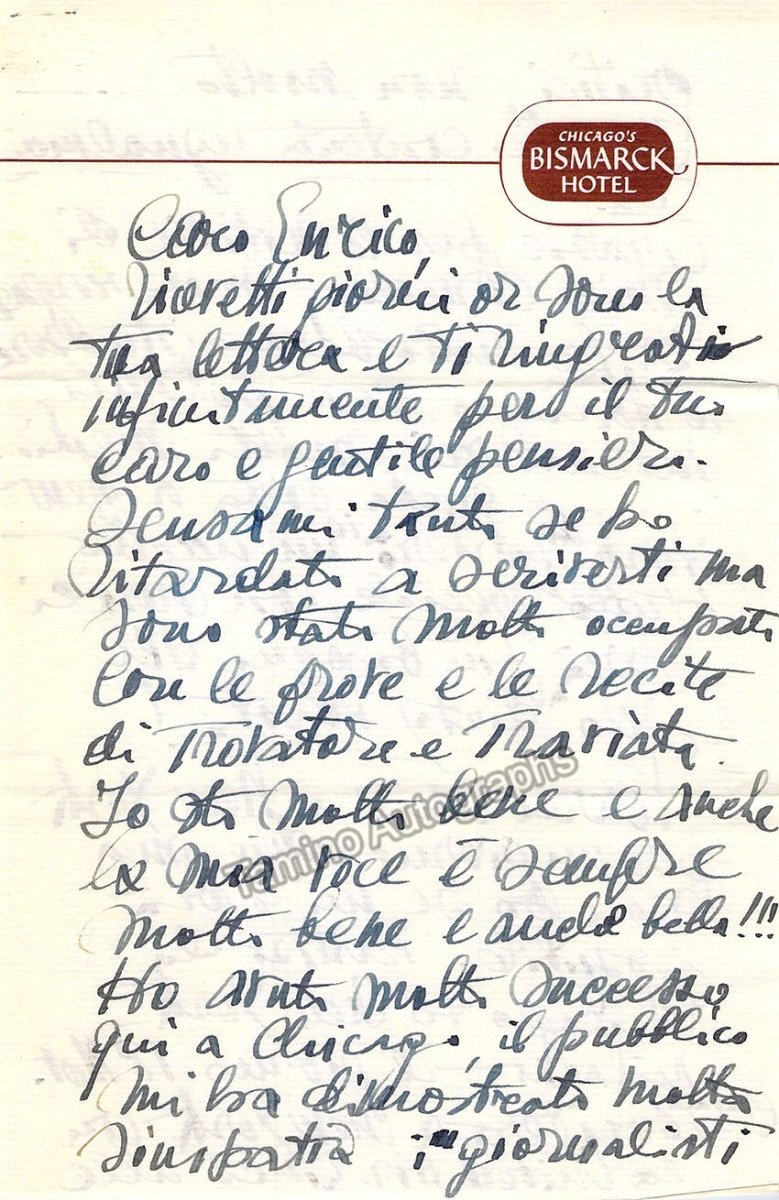 CHICAGO'S
BISMARCK
HOTEL
Caro Enrico,
ricevetti giorni or sono la
tua lettera e ti ringrazio
infinitamente per il tuo
caro e gentile pensiero.
Scusami tanto se ho
ritardato a scriverti ma
sono stato molto occupato
con le prove e le recite
di Trovatore e Traviata.
Io sto molto bene e anche
la mia voce è sempre
molto bene e anche bella!!!
Ho avuto molto successo
qui a Chicago, il pubblico
mi ha dimostrato molta
simpatia i giornalisti
Tamino Autographs